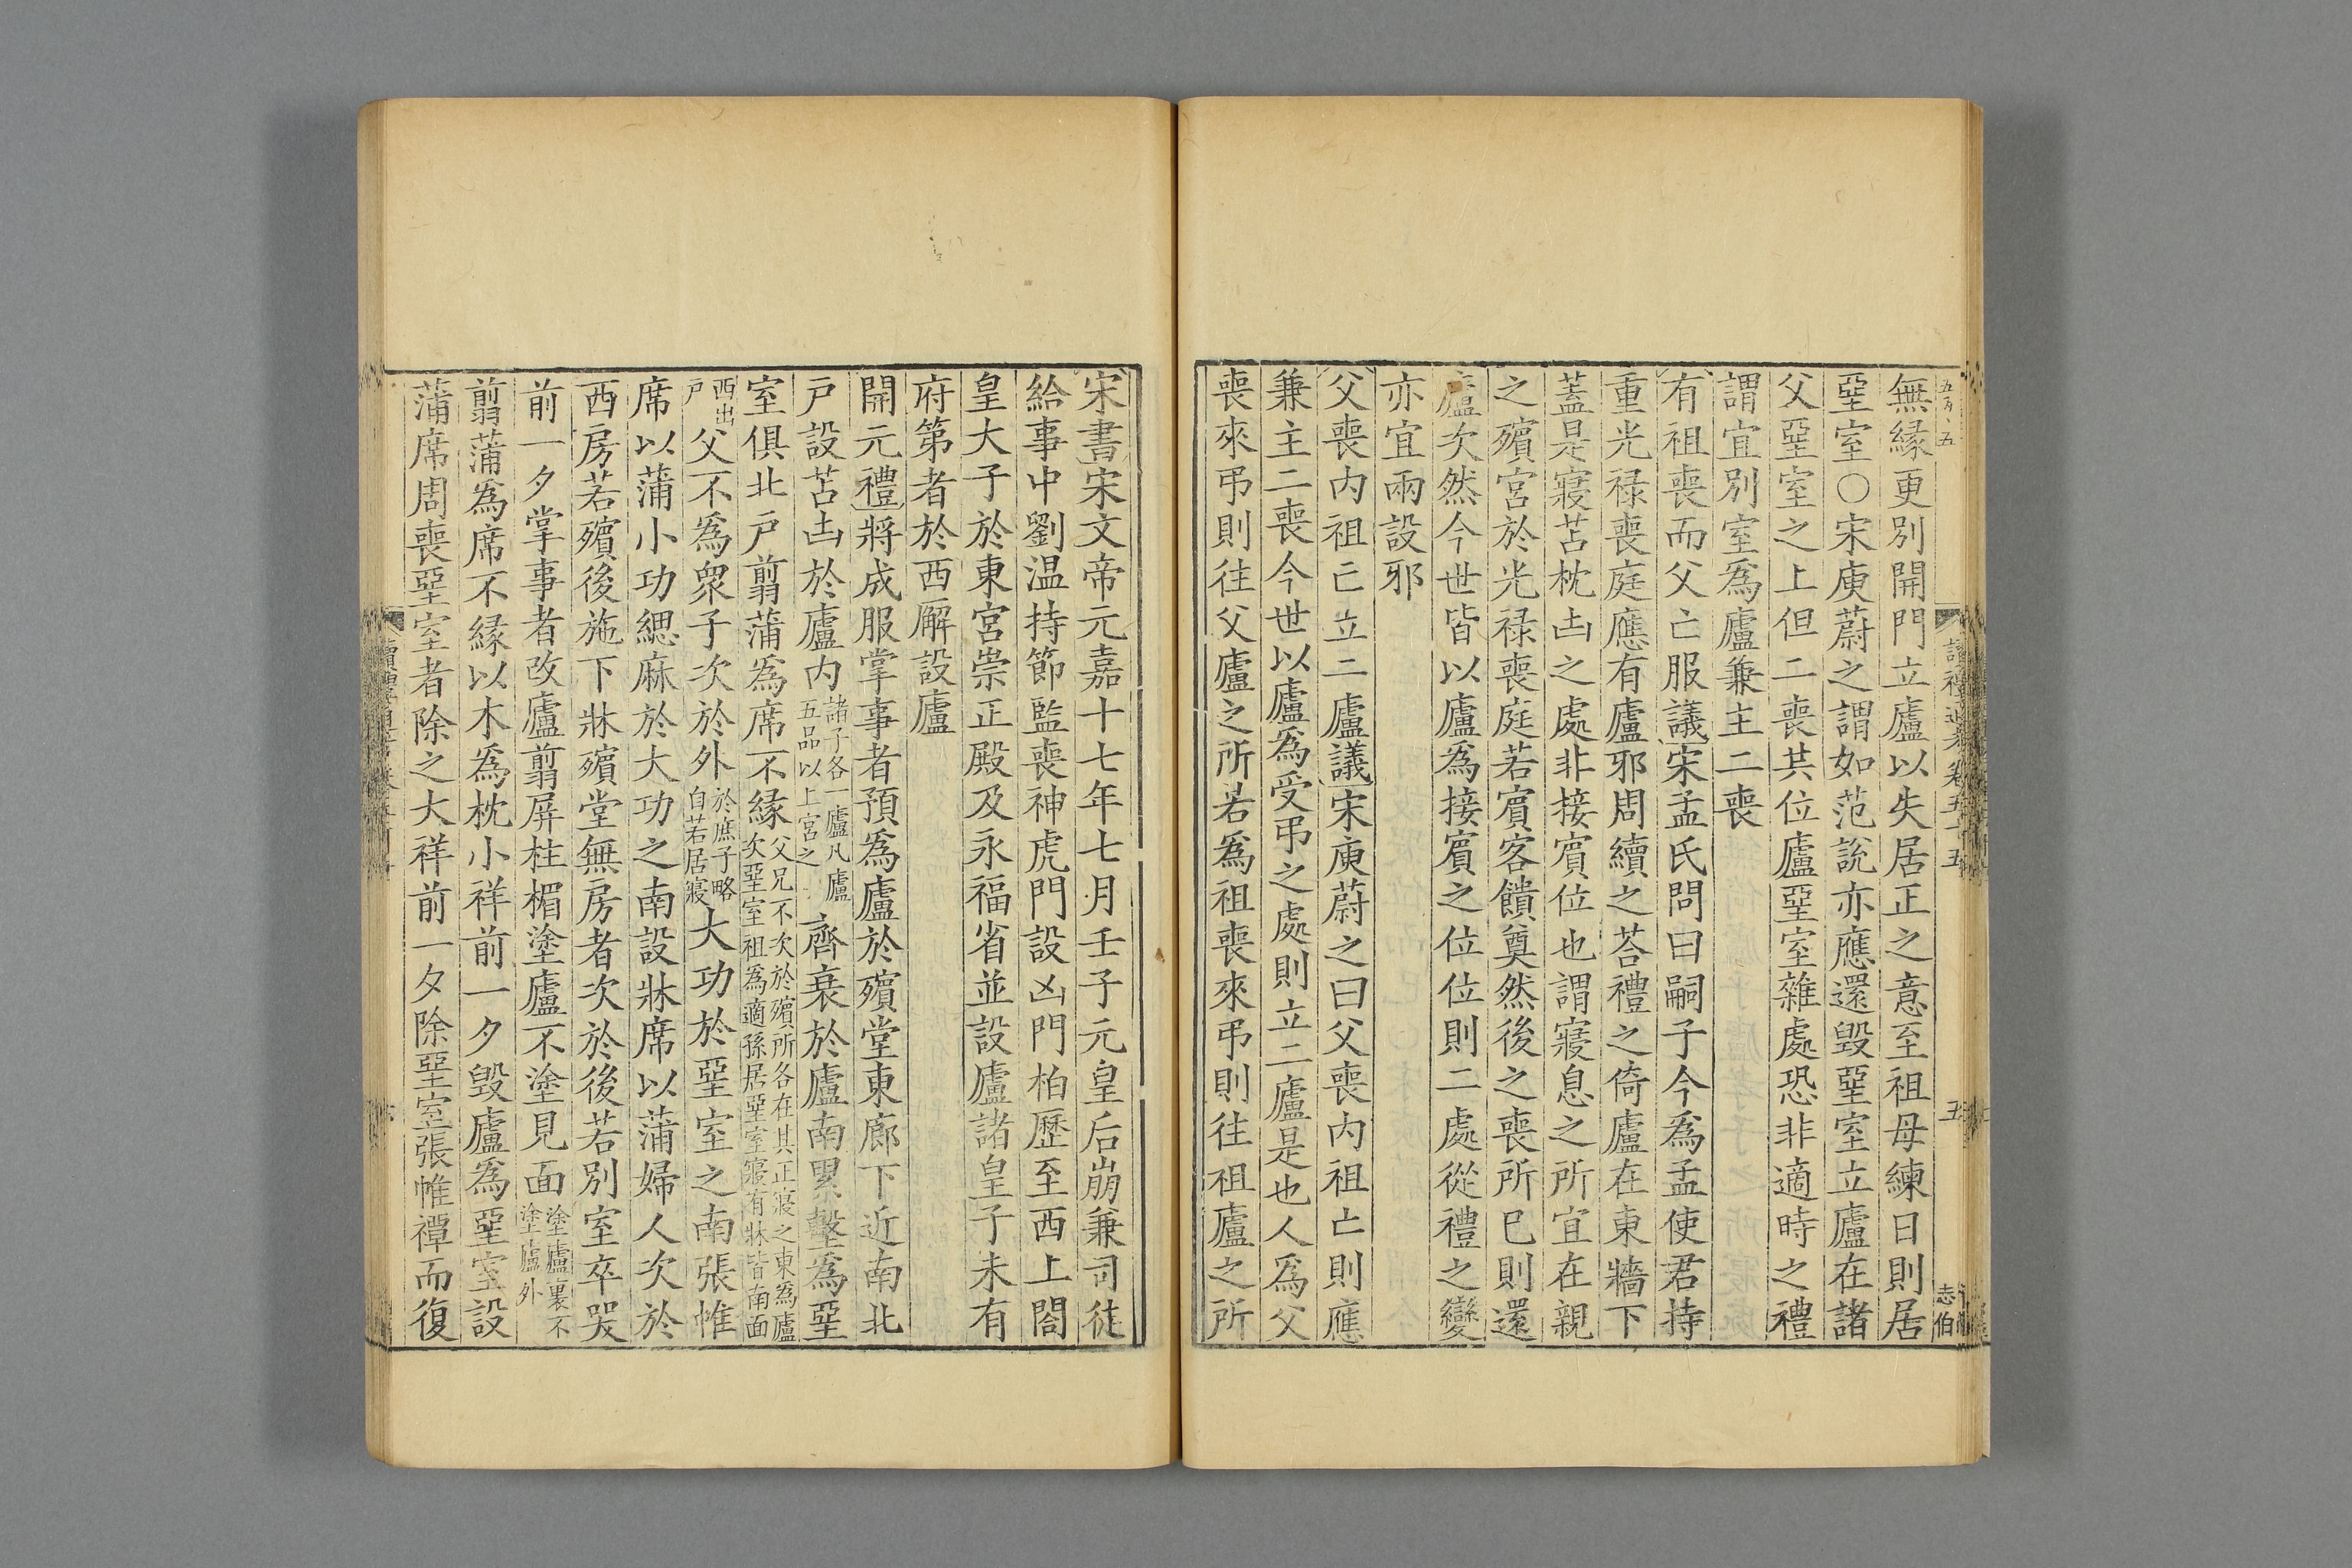 無縁更別開門立廬以失居正之意至祖母練日則居
堊室○宋庾蔚之謂如范說亦應還毀堊室立廬在諸
父堊室之上但二喪其位廬堊室雜處恐非適時之禮
謂宜別室爲廬兼主二喪
有祖喪而父亡服議宋孟氏問曰嗣子今爲孟使君持
重光禄喪庭應有廬邪周續之荅禮之倚廬在東牆下
蓋是寢苫枕凷之處非接賔位也謂寢息之所宜在親
之殯宮於光禄喪庭若賔客饋奠然後之喪所巳則還
廬次然今世皆以廬爲接賔之位位則二處從禮之變
亦宜兩設邪
父喪内祖亡立二廬議宋庾蔚之曰父喪内祖亡則應
兼主二喪今世以廬爲受弔之處則立二廬是也人爲父
喪來弔則往父廬之所若爲祖喪來弔則往祖廬之所
五
志伯
宋書宋文帝元嘉十七年七月壬子元皇后崩兼司徒
給事中劉温持節監喪神虎門設凶門柏歷至西上閤
皇大子於東宮崇正殿及永福省並設廬諸皇子未有
府第者於西廨設廬
開元禮將成服掌事者預爲廬於殯堂東廊下近南北
戸設苫凷於廬内諸子各一廬凡廬五品以上宮之齊衰於廬南累墼爲堊
室俱北戸翦蒲爲席不緣父兄不次於殯所各在其正寢之東爲廬次堊室祖爲適孫居堊室寢有牀皆南面
西出戸父不爲衆子次於外於庶子略自若居寢大功於堊室之南張帷
席以蒲小功緦麻於大功之南設牀席以蒲婦人次於
西房若殯後施下牀殯堂無房者次於後若別室卒哭
前一夕掌事者改廬翦屏柱楣塗廬不塗見面塗廬裏不塗廬外
翦蒲爲席不緣以木爲枕小祥前一夕毀廬爲堊室設
蒲席周喪堊室者除之大祥前一夕除堊室張帷禫而復